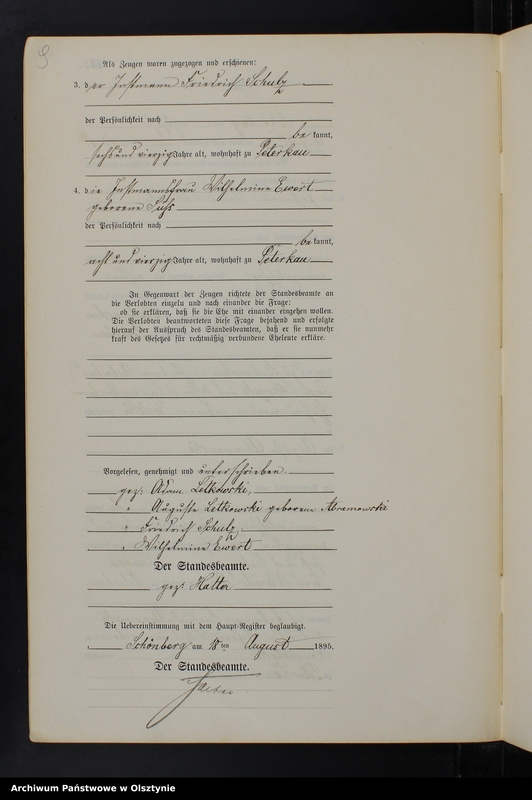 Als Zeugen waren zugezogen und erschienen:
3. der Instmann Friedrich Schulz
der Persönlichkeit nach
be kannt,
sechs und vierzig Jahre alt, wohnhaft zu Peterkau
4. die Instmannsfrau Wilhelmine Ewert
geborene
der Persönlichkeit nach
be kannt,
acht und vierzig Jahre alt, wohnhaft zu Peterkau
In Gegenwart der Zeugen richtete der Standesbeamte an
die Verlobten einzeln und nach einander die Frage:
ob sie erklären, daß sie die Ehe mit einander eingehen wollen.
Die Verlobten beantworteten diese Frage bejahend und erfolgte
hierauf der Ausspruch des Standesbeamten, daß er sie nunmehr
kraft des Gesetzes für rechtmäßig verbundene Eheleute erkläre.
Vorgelesen, genehmigt und unterschrieben.
gez: Adam Letkowski,
" Auguste Letkowski geborene Abramowski
" Friedrich Schulz
" Wilhelmine Ewert
Der Standesbeamte.
gez: Halter
Die Uebereinstimmung mit dem Haupt-Register beglaubigt.
Schönberg am 18 ten August 1895.
Der Standesbeamte.
Halter
Archiwum Państwowe w Olsztynie